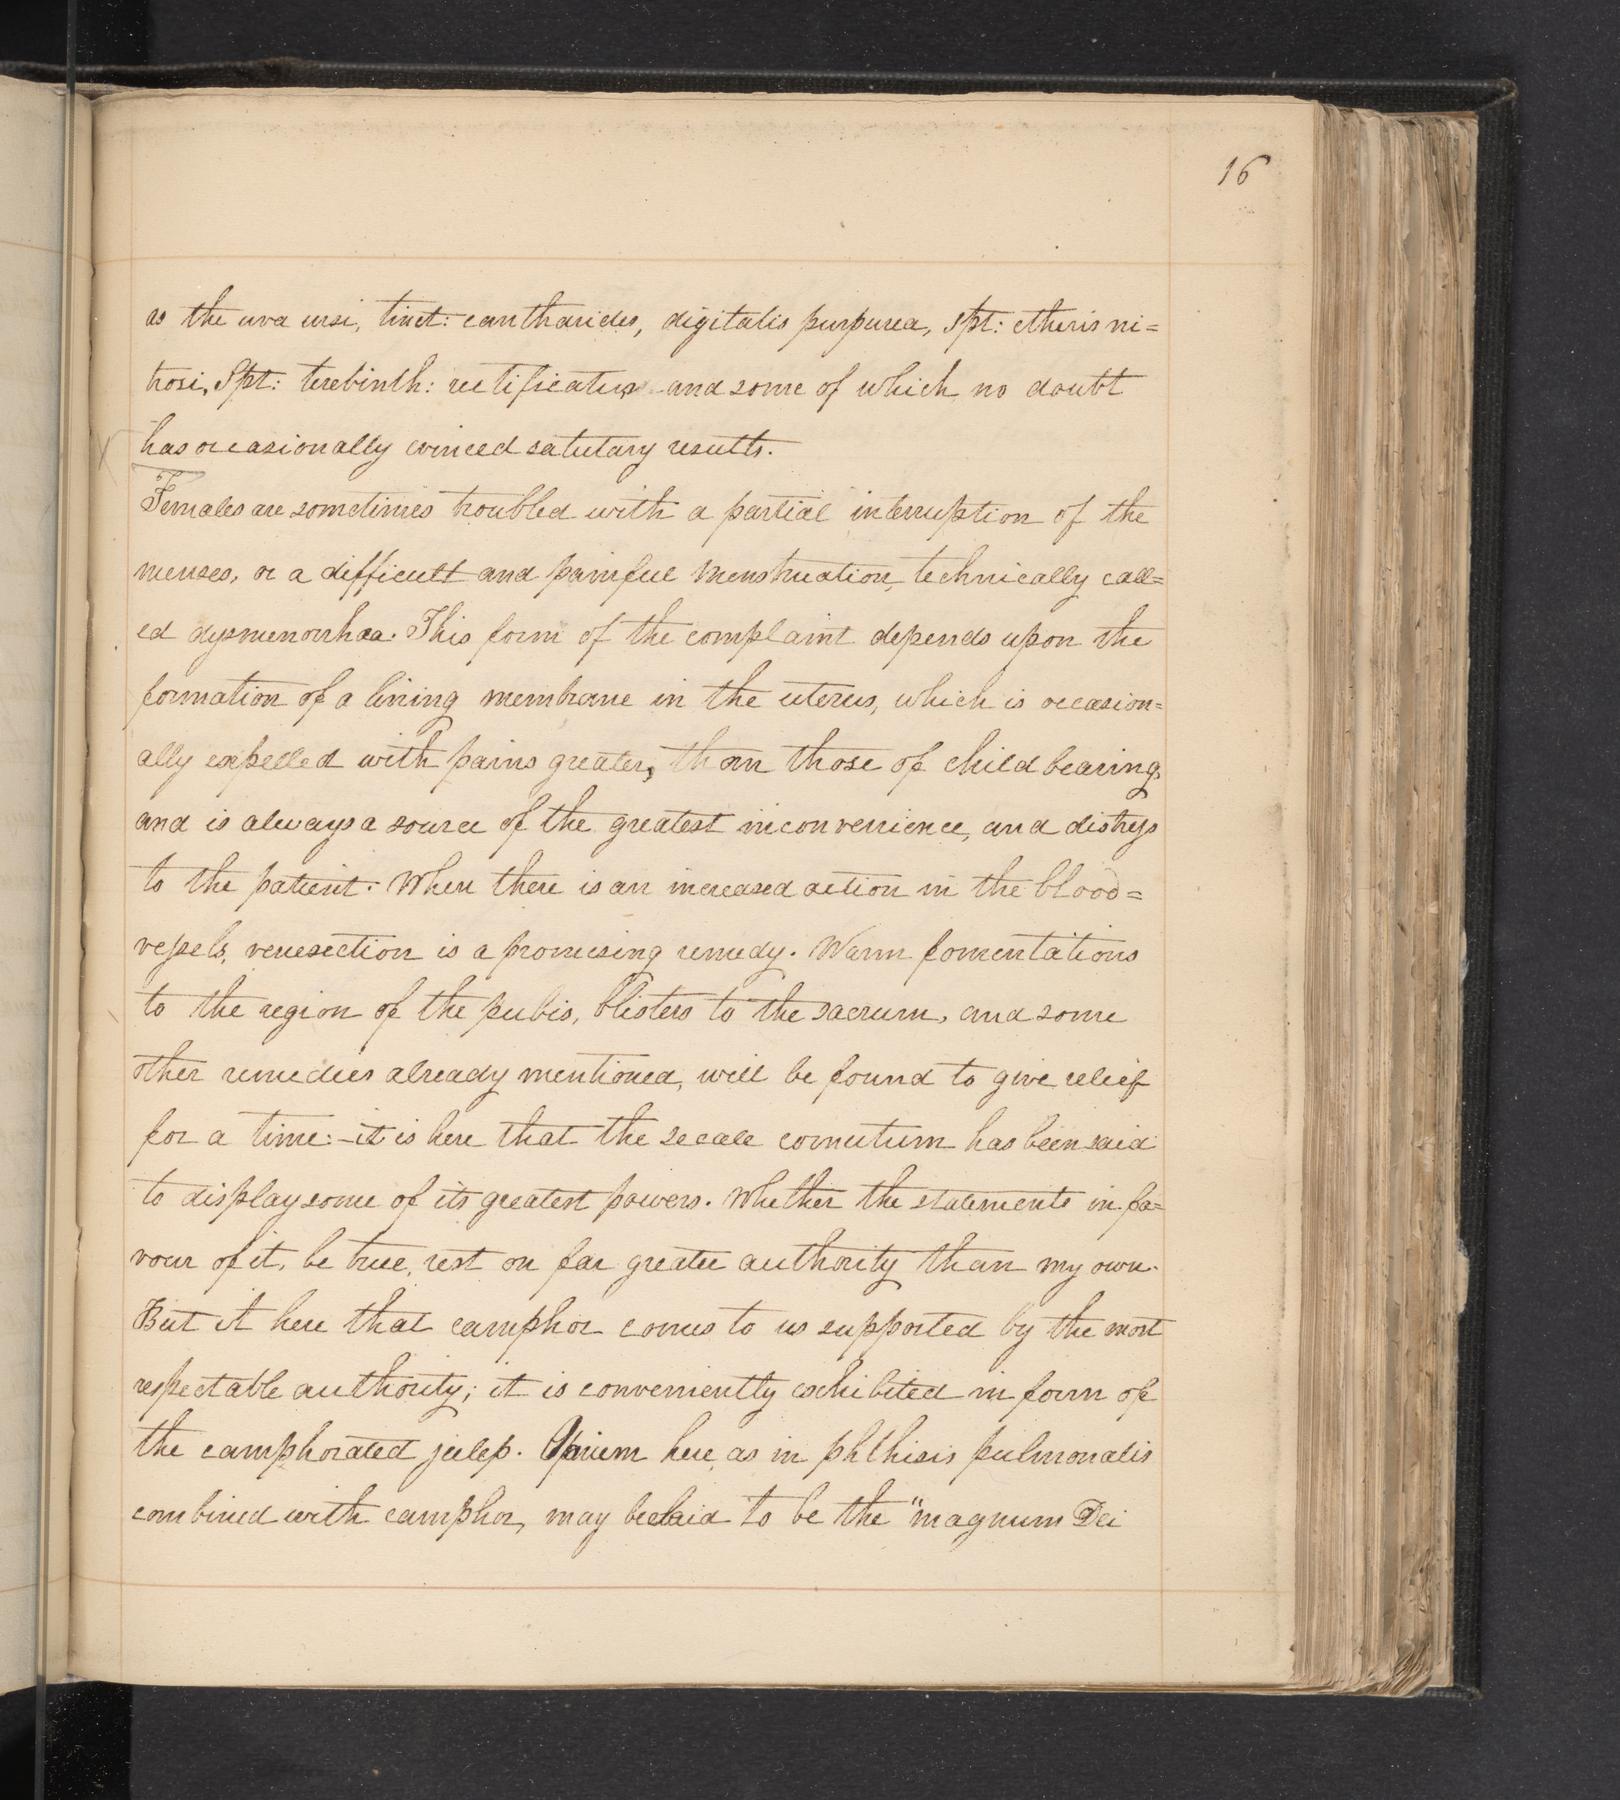 16
as the uva ursi, tinct: cantharides, digitalis purpurea, spt: etheris ni=
trosi, Spt: terebinth: rectificatus and some of which no doubt
has occasionally evinced salutary results.
Females are sometimes troubled with a partial interruption of the
menses, or a difficult and painful menstruation, technically call=
ed dysmenorrhœa. This form of the complaint depends upon the
formation of a lining membrane in the uterus, which is occasion=
ally expelled with pains greater, than those of child bearing,
and is always a source of the greatest inconvenience, and distress
to the patient. When there is an increased action in the blood=
vessels, venesection is a promising remedy. Warm fomentations
to the region of the pubis, blisters to the sacrum, and some
other remedies already mentioned, will be found to give relief
for a time:- it is here that the secale cornutum has been said
to display some of its greatest powers. Whether the statements in fa=
vour of it, be true, rest on far greater authority than my own.
But it here that camphor comes to us supported by the most
respectable authority; it is conveniently exhibited in form of
the camphorated julep. Opium here, as in phthisis pulmonalis
combined with camphor, may be said to be the "magnum Dei